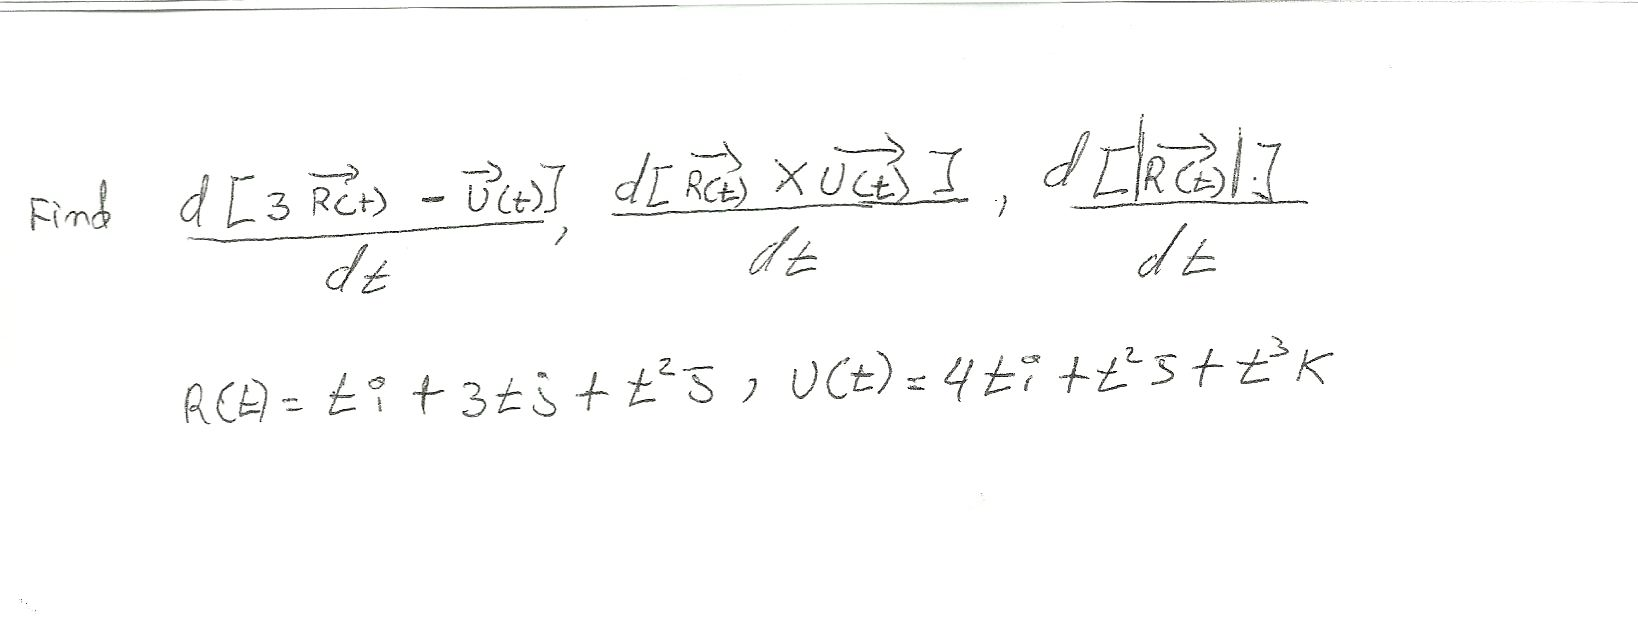 Find d[3 R(t) - U(t)], d[R(t) × U(t)], d[|R(t)|]
dt dt dt
R(t) = ti + 3tj + t²j, U(t) = 4ti + t²j + t³k